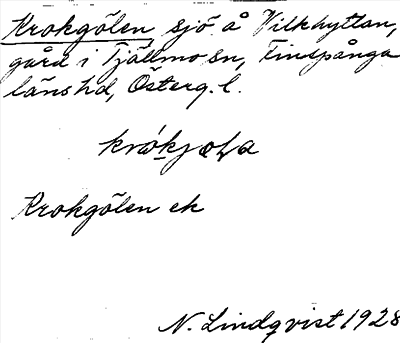 Krokgölen sjö å Vilkhyttan,
gård i Tjällmo sn, Finspånga
läns hd, Österg. l.
Krokgölen ek
N. Lindqvist 1928